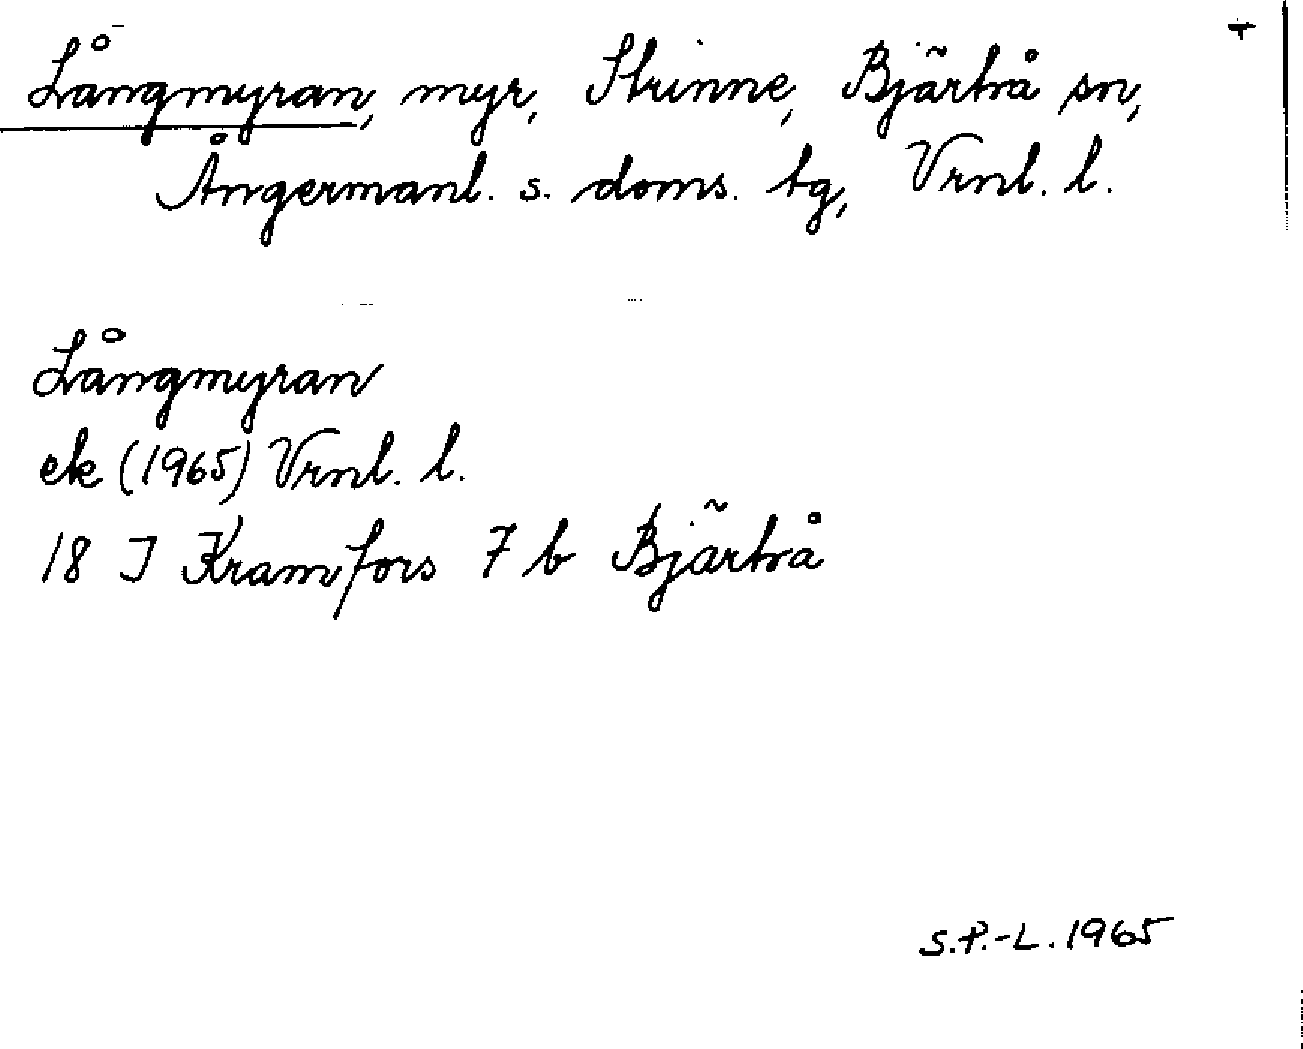 Långmyran, myr, Strinne, Bjärtrå sn,
Ångermanl. s. doms. tg, Vrnl. l.
Långmyran
ek (1965) Vrnl. l.
18 I Kramfors 7 b Bjärtrå
S.P.-L. 1965